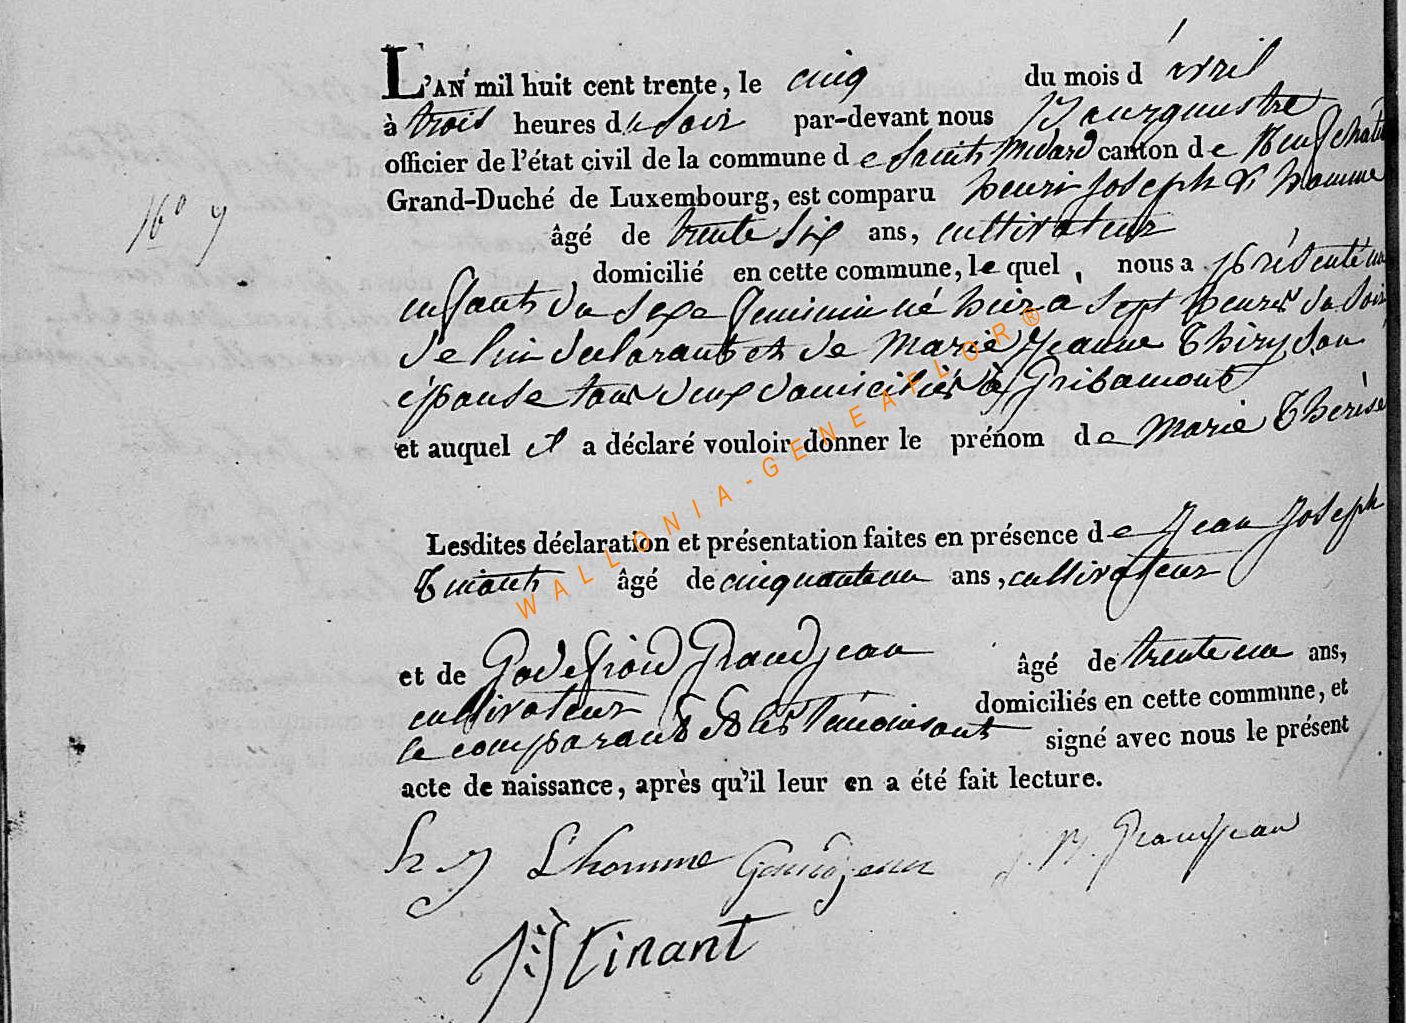 L'AN mil huit cent trente, le cinq du mois d'avril
à trois heures du Soir par-devant nous Bourgmestre
officier de l'état civil de la commune de Saint Médard canton de Neufchâteau
Grand-Duché de Luxembourg, est comparu henri Joseph L'homme
16° 9
âgé de trente Six ans, cultivateur
domicilié en cette commune, le quel, nous a présenté un
enfant du Sexe feminin né hier à Sept heures du Soir
de lui declarant et de Marie Jeanne Thiry Son
épouse tous deux domiciliés à Gribamont
et auquel il a déclaré vouloir donner le prénom de Marie Thérèse
Lesdites déclaration et présentation faites en présence de Jean Joseph
Tinant âgé de cinquante un ans, cultivateur
et de Godefroid Grandjean âgé de trente un ans,
cultivateur domiciliés en cette commune, et
le comparant et les témoins ont signé avec nous le présent
acte de naissance, après qu'il leur en a été fait lecture.
h J L'homme Grandjean Grandjean
JJ Tinant
WALLONIA-GENEAFLOR®